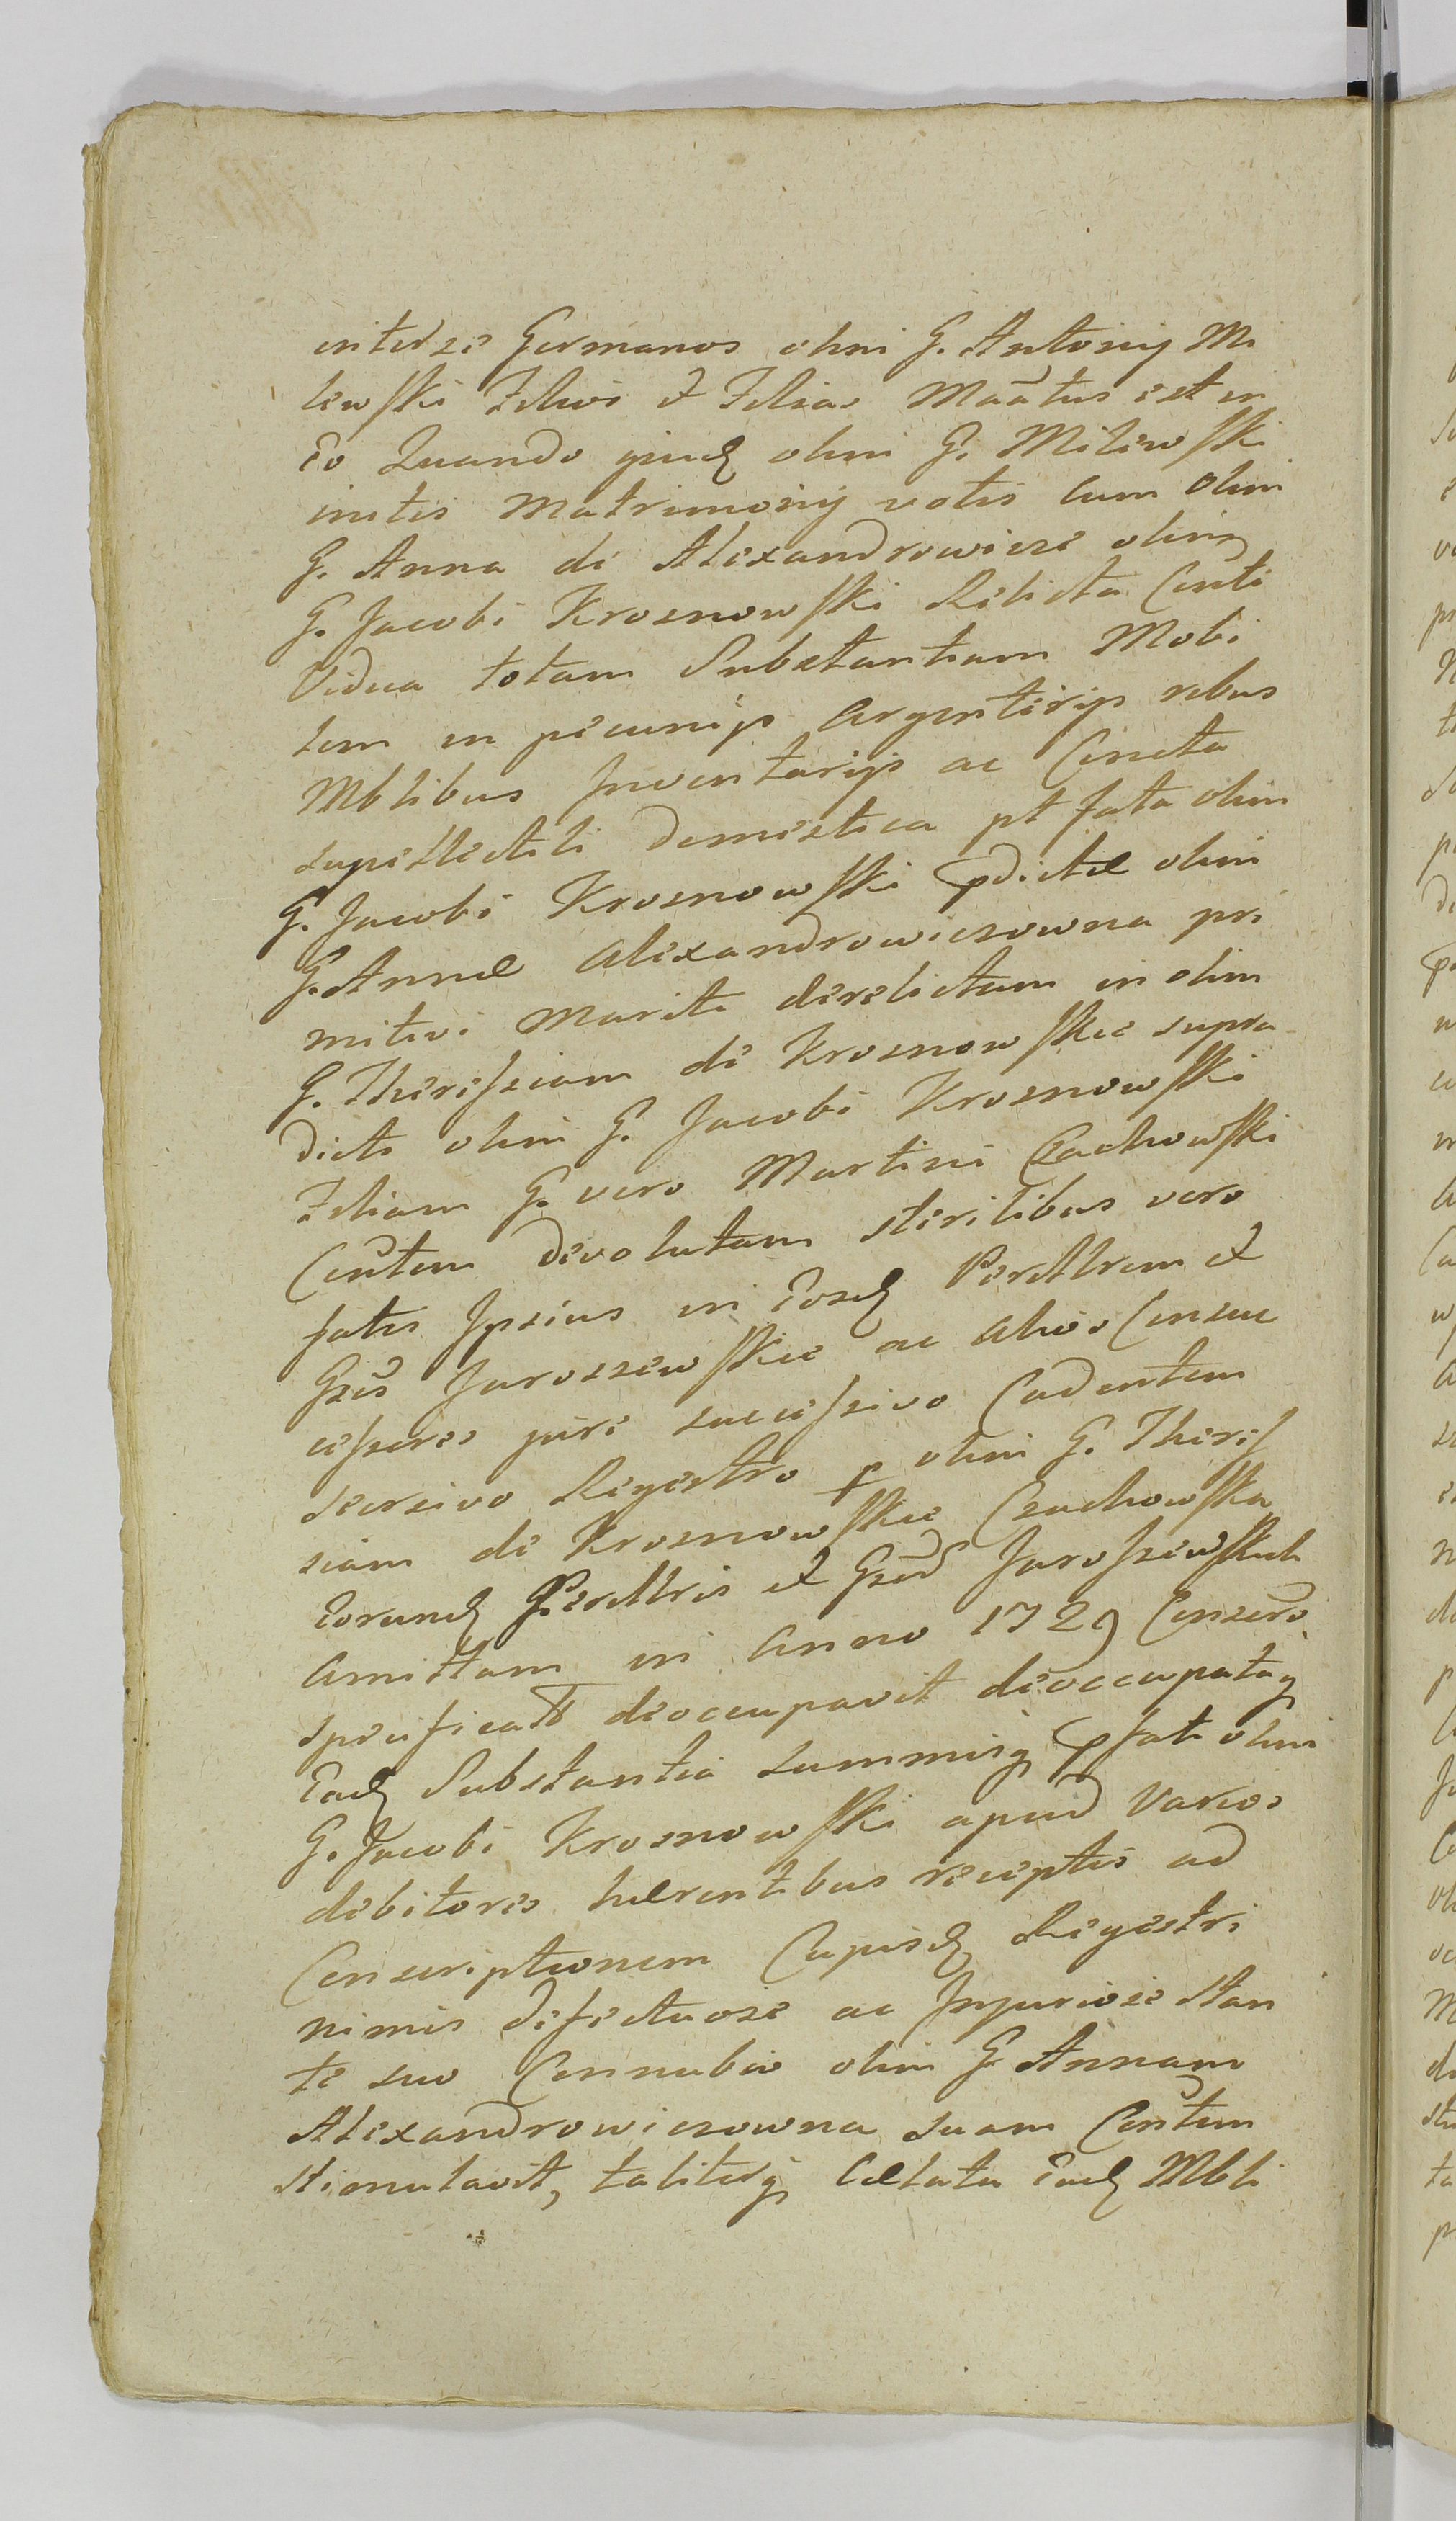 inter se Germanos olim G. Antonij Mi
lewski Filios et Filias Maãtus est in
Eo Quando ijusd olim G. Milewski
initis Matrimonij votis cum olim
G. Anna de Alexandrowicze olim
G. Jacobi Krosnowski Relicta Conti
Vidua totam Substantiam Mobi
lem in pecunijs argenterijs rebus
Mblibus Inventarijs ac Cuncta
supellectili domestica pt fata olim
G. Jacobi Krosnowski pdictæ olim
G. Annæ Alexandrowiczowna pri
mitivi Mariti derelictam in olim
G. Theressiam de Krosnowskie supra
dicti olim G. Jacobi Krosnowski
Filiam G. vero Martini Czachowski
Contem devolutam sterilibus vero
fatis Ipsius in Eosd Perillrem et
Gsos Jaroszewskie ac alios Consuc
cessores jure successivo Cadentem
seorsivo Regestro p olim G. Theres
siam de Krosnowskie Czachowska
Eorund Perillris et Gsor Jaroszewskich
Amittam in Anno 1729 Conscro
specificatt deoccupavit deoccupataq
Eadq Substantia summisq pfati olim
G. Jacobi Krosnowski apud Varios
debitores hærentibus receptis ad
Conscriptionem Cujusd Regestri
nimis defectuose ac Injuriose stan
te suo Connubio olim G. Annam
Alexandrowiczowna suam Contem
stimulavit, taliterq Cælata Ead Mbli